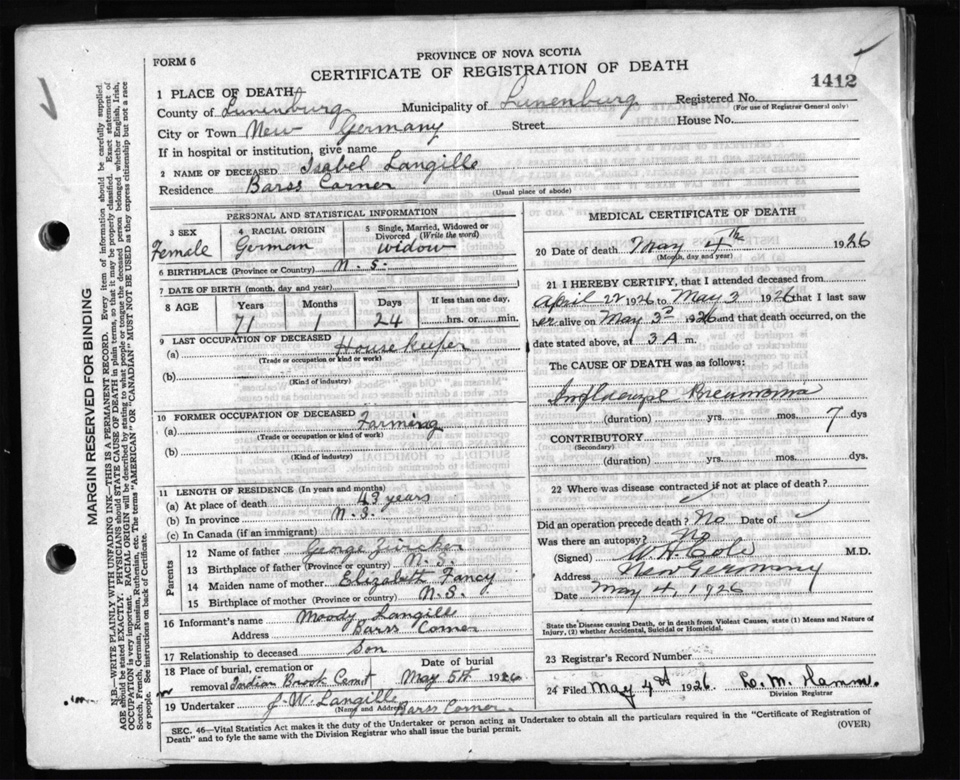 FORM 6
PROVINCE OF NOVA SCOTIA
CERTIFICATE OF REGISTRATION OF DEATH
1412
1 PLACE OF DEATH
County of Lunenburg Municipality of Lunenburg Registered No.
(For use of Registrar General only)
City or Town New Germany Street House No.
If in hospital or institution, give name
2 NAME OF DECEASED Isabel Langille
Residence Barss Corner
(Usual place of abode)
PERSONAL AND STATISTICAL INFORMATION
3 SEX 4 RACIAL ORIGIN 5 Single, Married, Widowed or
Divorced (Write the word)
Female German widow
6 BIRTHPLACE (Province or Country) N. S.
7 DATE OF BIRTH (month, day and year)
8 AGE Years Months Days If less than one day,
71 1 24 hrs. or min.
9 LAST OCCUPATION OF DECEASED
(a) House Keeper
(Trade or occupation or kind of work)
(b)
(Kind of industry)
10 FORMER OCCUPATION OF DECEASED
(a) Farming
(Trade or occupation or kind of work)
(b)
(Kind of industry)
11 LENGTH OF RESIDENCE (In years and months)
(a) At place of death 43 years
(b) In province N. S.
(c) In Canada (if an immigrant)
Parents
12 Name of father George Zwicker
13 Birthplace of father (Province or Country) N. S.
14 Maiden name of mother Elizabeth Fancy
15 Birthplace of mother (Province or country) N. S.
16 Informant's name Moody Langille
Address Barss Corner
17 Relationship to deceased Son
18 Place of burial, cremation or Date of burial
removal Indian Brook Cemt May 5th 1926
19 Undertaker J. W. Langille
(Name and Address) Barss Corner.
MEDICAL CERTIFICATE OF DEATH
20 Date of death May 4th 1926
(Month, day and year)
21 I HEREBY CERTIFY, that I attended deceased from
April 22 1926 to May 3 1926 that I last saw
her alive on May 3d 1926 and that death occurred, on
the date stated above, at 3 A m.
The CAUSE OF DEATH was as follows:
Influenzal Pneumonia
(duration) yrs. mos. 7 dys
CONTRIBUTORY
(Secondary)
(duration) yrs. mos. dys.
22 Where was disease contracted if not at place of death?
Did an operation precede death? No Date of
Was there an autopsy? No
(Signed) W. H. Cole M.D.
Address New Germany
Date May 4, 1926
State the Disease causing Death, or in death from Violent Causes, state (1) Means and Nature of
Injury, (2) whether Accidental, Suicidal or Homicidal.
23 Registrar's Record Number
24 Filed May 4th 1926. L. M. Hamm.
Division Registrar
SEC. 46—Vital Statistics Act makes it the duty of the Undertaker or person acting as Undertaker to obtain all the particulars required in the "Certificate of Registration of
Death" and to fyle the same with the Division Registrar who shall issue the burial permit.
(OVER)
MARGIN RESERVED FOR BINDING
N.B.—WRITE PLAINLY WITH UNFADING INK—THIS IS A PERMANENT RECORD. Every item of information should be carefully supplied.
AGE should be stated EXACTLY. PHYSICIANS should STATE CAUSE OF DEATH in plain terms, so that it may be properly classified. Exact statement of
OCCUPATION is very important. RACIAL ORIGIN will be described by stating to what people or tongue the deceased person belonged whether English, Irish,
Scotch, French, German, Russian, Ruthenian, etc. The terms "AMERICAN" OR "CANADIAN" MUST NOT BE USED as they express citizenship but not a race
or people. See instructions on back of Certificate.